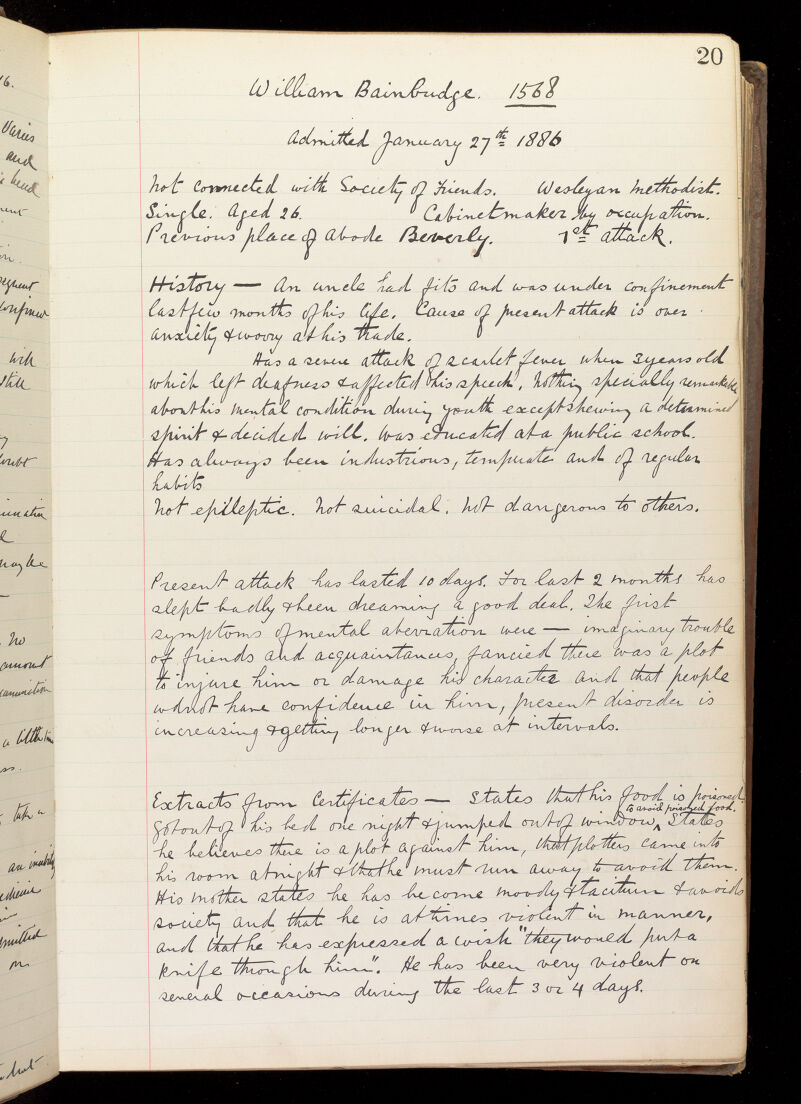 20
William Bainbridge. 1568
Admitted January 27th 1886
Not connected with Society of Friends. Wesleyan Methodist.
Single. Aged 26. Cabinetmaker by occupation.
Previous place of abode Beverly. 1st attack.
History — An uncle had fits and was under confinement
last few months of his life. Cause of present attack is over
anxiety & worry at his trade.
Has a severe attack of scarlet fever when 3 years old
which left deafness & affected his speech. Nothing specially remarkable
about his mental condition during youth except shewing a determined
spirit & decided will. Was educated at a public school.
Has always been industrious, temperate and of regular
habits
Not epileptic. Not suicidal. Not dangerous to others.
Present attack has lasted 10 days. For last 2 months has
slept badly & been dreaming a good deal. The first
symptoms of mental aberration were — imaginary trouble
of friends and acquaintances, fancied there was a plot
to injure him or damage his character and that people
wd not have confidence in him, present disorder is
increasing & getting longer & worse at intervals.
Extracts from Certificates — States that his food is poisoned
to avoid poisoned food.
got out of his bed one night & jumped out of window, States
he believes there is a plot against him, that plotters came into
his room at night & that he must run away to avoid them.
His mother states he has become moody & taciturn & avoids
society and that he is at times violent in manner,
and that he has expressed a wish "they would put a
knife through him". He has been very violent on
several occasions during the last 3 or 4 days.